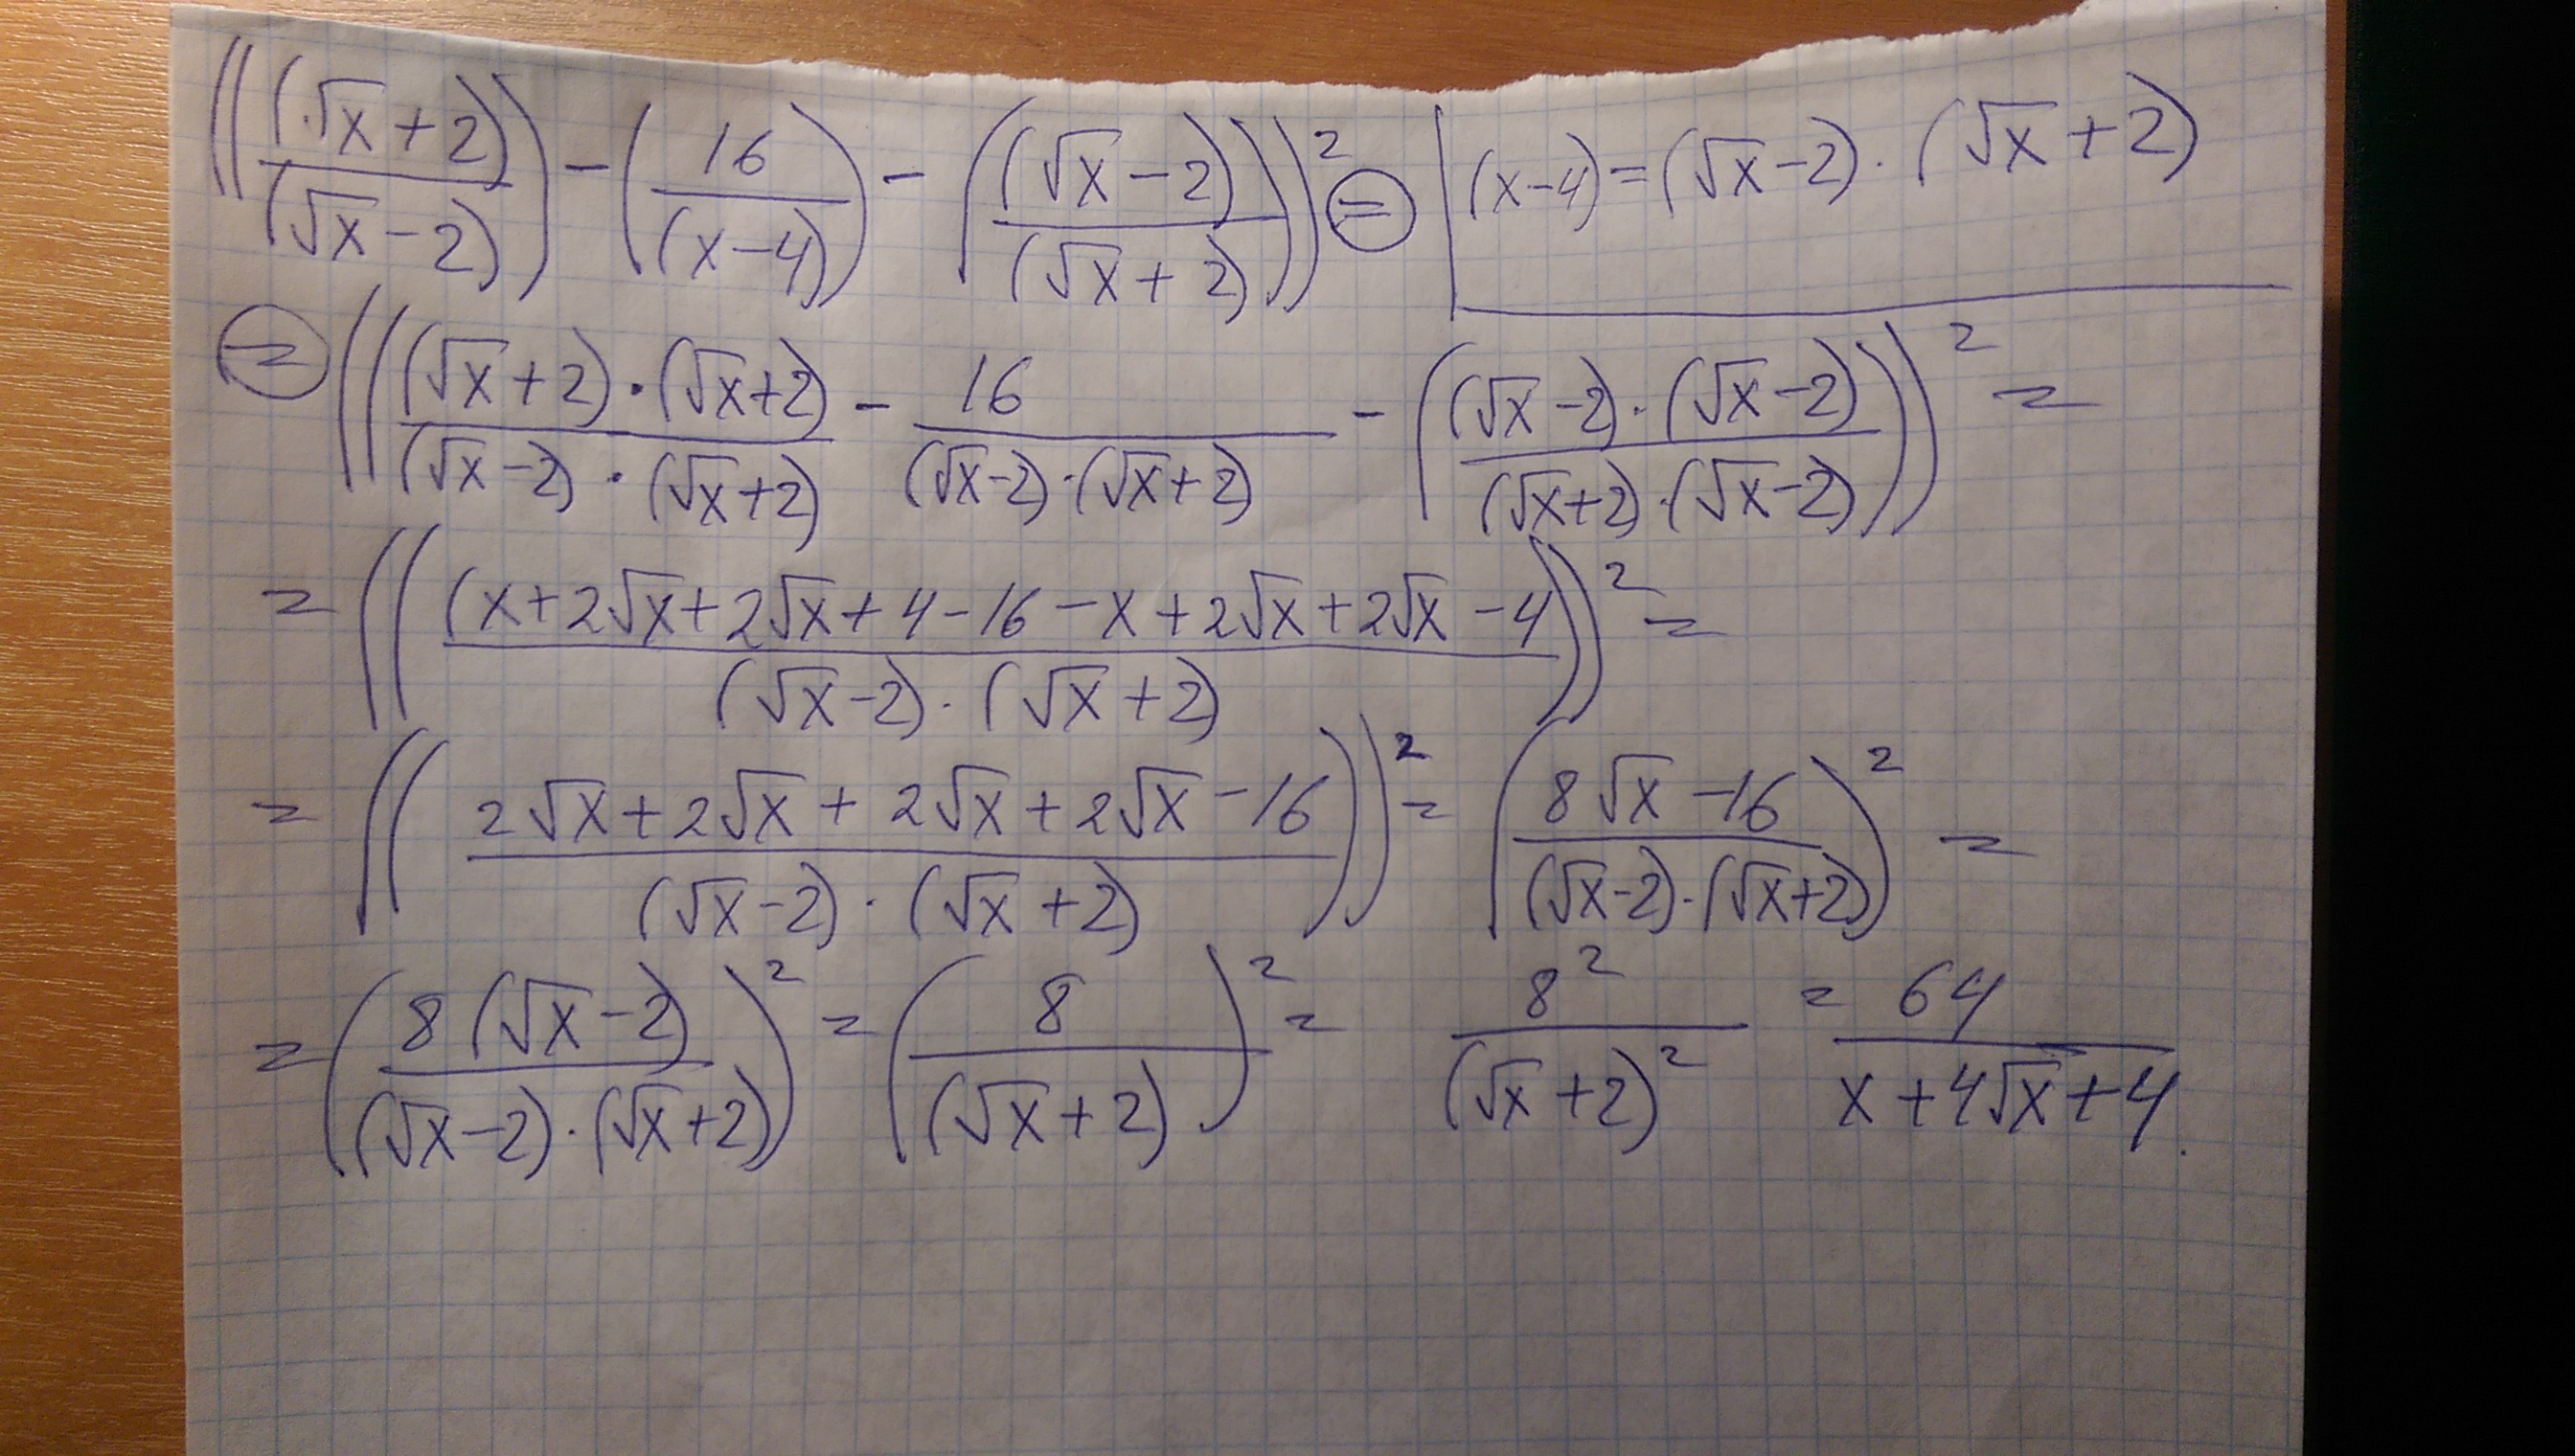 (((√x+2)/(√x-2)) - (16/(x-4)) - ((√x-2)/(√x+2)))² = | (x-4)=(√x-2)·(√x+2)
= (((√x+2)·(√x+2)/(√x-2)·(√x+2) - 16/(√x-2)·(√x+2) - ((√x-2)·(√x-2)/(√x+2)·(√x-2)))² =
= (((x+2√x+2√x+4-16-x+2√x+2√x-4)/(√x-2)·(√x+2)))² =
= ((2√x+2√x+2√x+2√x-16/(√x-2)·(√x+2)))² = (8√x-16/(√x-2)·(√x+2))² =
= (8(√x-2)/(√x-2)·(√x+2))² = (8/(√x+2))² = 8²/(√x+2)² = 64/x+4√x+4.